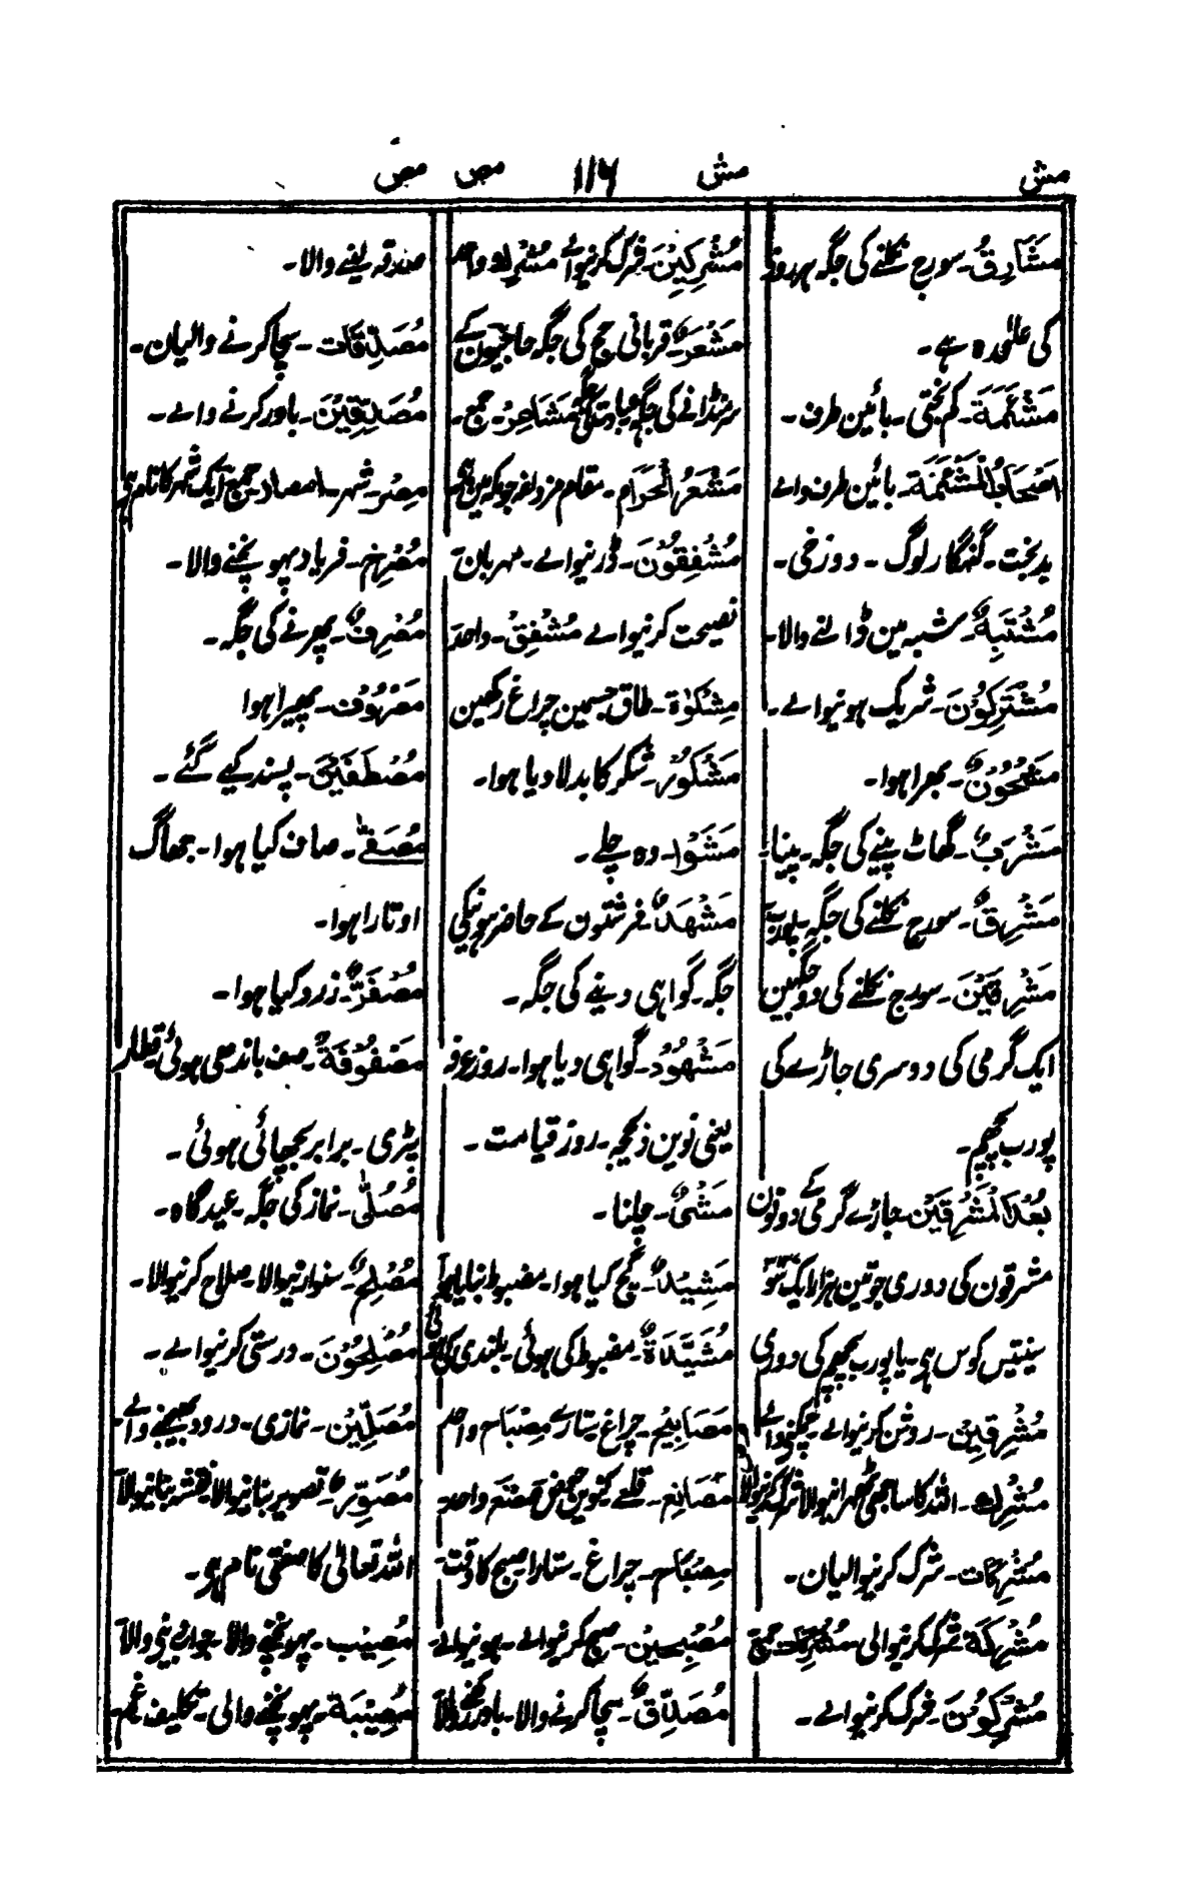 مش مش ۱۱۶ مص مص
مَشَارِقُ۔ سورج نکلنے کی جگہ ہر روز
کی علٰحدہ ہے۔
مَشْئَمَةَ۔ کم بختی۔ بائین طرف۔
اَصْحَابُ الْمَشْئَمَةِ۔ بائین طرف والے
بدبخت۔ گنہگار لوگ۔ دوزخی۔
مُشْتَبِهٌ۔ شبہ مین ڈالنے والا۔
مُشْتَرِكُوْنَ۔ شریک ہونیوالے۔
مَشْحُوْنٌ۔ بھرا ہوا۔
مَشْرَبٌ۔ گھاٹ پینے کی جگہ۔ پینا۔
مَشْرِقٌ۔ سورج نکلنے کی جگہ۔ پورب
مَشْرِقَيْنَ۔ سورج نکلنے کی دو جگہین
ایک گرمی کی دوسری جاڑے کی
پورب پچھم۔
بُعْدَ الْمَشْرِقَيْنِ۔ جاڑے گرمی کے دونون
مشرقون کی دوری جو تین ہزار ایک سَو
سینتیس کوس ہی۔ یا پورب پچھم کی دوری
مُشْرِقِيْنَ۔ روشن کرنیوالے چمکنے والے
مُشْرِك۔ اللہ کا ساجھی ٹھہرانیوالا شرک کرنیوالا
مُشْرِكَات۔ شرک کرنیوالیان۔
مُشْرِكَةَ شرک کرنیوالی مُشْرِكَات جمع
مُشْرِكُوْنَ۔ شرک کرنیوالے۔
مُشْرِكِيْنَ۔ شرک کرنیوالے مُشْرِك واحد
مَشْعَرٌ۔ قربانی حج کی جگہ حاجیون کے
سر منڈانے کی جگہ مَشَاعِرُ۔ جمع۔
مَشْعَرُ الْحَرَام۔ مقام مزدلفہ جو مکہ مین ہی
مُشْفِقُوْنَ۔ ڈرنیوالے۔ مہربان
نصیحت کرنیوالے مُشْفِقٌ۔ واحد
مِشْكٰوة۔ طاق جسمین چراغ رکھین
مَشْكُوْر۔ شکر کا بدلا دیا ہوا۔
مَشَوْا۔ وہ چلے۔
مَشْهَدٌ۔ فرشتون کے حاضر ہونیکی
جگہ۔ گواہی دینے کی جگہ۔
مَشْهُوْد۔ گواہی دیا ہوا۔ روز عرفہ
یعنی نوین ذیحجہ۔ روز قیامت۔
مَشْىٌ۔ چلنا۔
مَشِيْدٌ۔ گچ کیا ہوا۔ مضبوط بنایا ہوا
مُشَيَّدَةٌ۔ مضبوط کی ہوئی۔ بلندی کی ہوئی
مَصَابِيْح۔ چراغ ستارے مِصْبَاح واحد
مَصَانِع۔ قلعے کنوین حوض مَصْنَع واحد
مِصْبَاح۔ چراغ۔ ستارا صبح کا وقت
مُصْبِحِيْن۔ صبح کرنیوالے۔ ہونیوالے
مُصَدِّقٌ۔ سچا کرنے والا۔ باور کرنے والا
صدقہ لینے والا۔
مُصَدِّقَات۔ سچا کرنے والیان۔
مُصَدِّقِيْنَ۔ باور کرنے والے۔
مِصْر۔ شہر۔ امصار۔ جمع ایک شہر کا نام ہی
مُصْرِخ۔ فریاد پہونچنے والا۔
مَصْرِفٌ۔ پھرنے کی جگہ۔
مَصْرُوْف۔ پھیرا ہوا
مُصْطَفَيْنَ۔ پسند کیے گئے۔
مُصَفًّى۔ صاف کیا ہوا۔ جھاگ
اوتارا ہوا۔
مُصْفَرٌّ۔ زرد کیا ہوا۔
مَصْفُوْفَةٌ۔ صف باندھی ہوئی قطار
پٹری۔ برابر بچھائی ہوئی۔
مُصَلّٰى۔ نماز کی جگہ۔ عیدگاہ۔
مُصْلِحٌ۔ سنوارنیوالا۔ صلاح کرنیوالا۔
مُصْلِحُوْنَ۔ درستی کرنیوالے۔
مُصَلِّيْن۔ نمازی۔ درود بھیجنے والے۔
مُصَوِّرٌ۔ تصویر بنانیوالا نقشہ بنانیوالا
اللہ تعالیٰ کا صفتی نام ہی۔
مُصِيْب۔ پہونچنے والا۔
مُصِيْبَة۔ پہونچنے والی۔ تکلیف غم۔